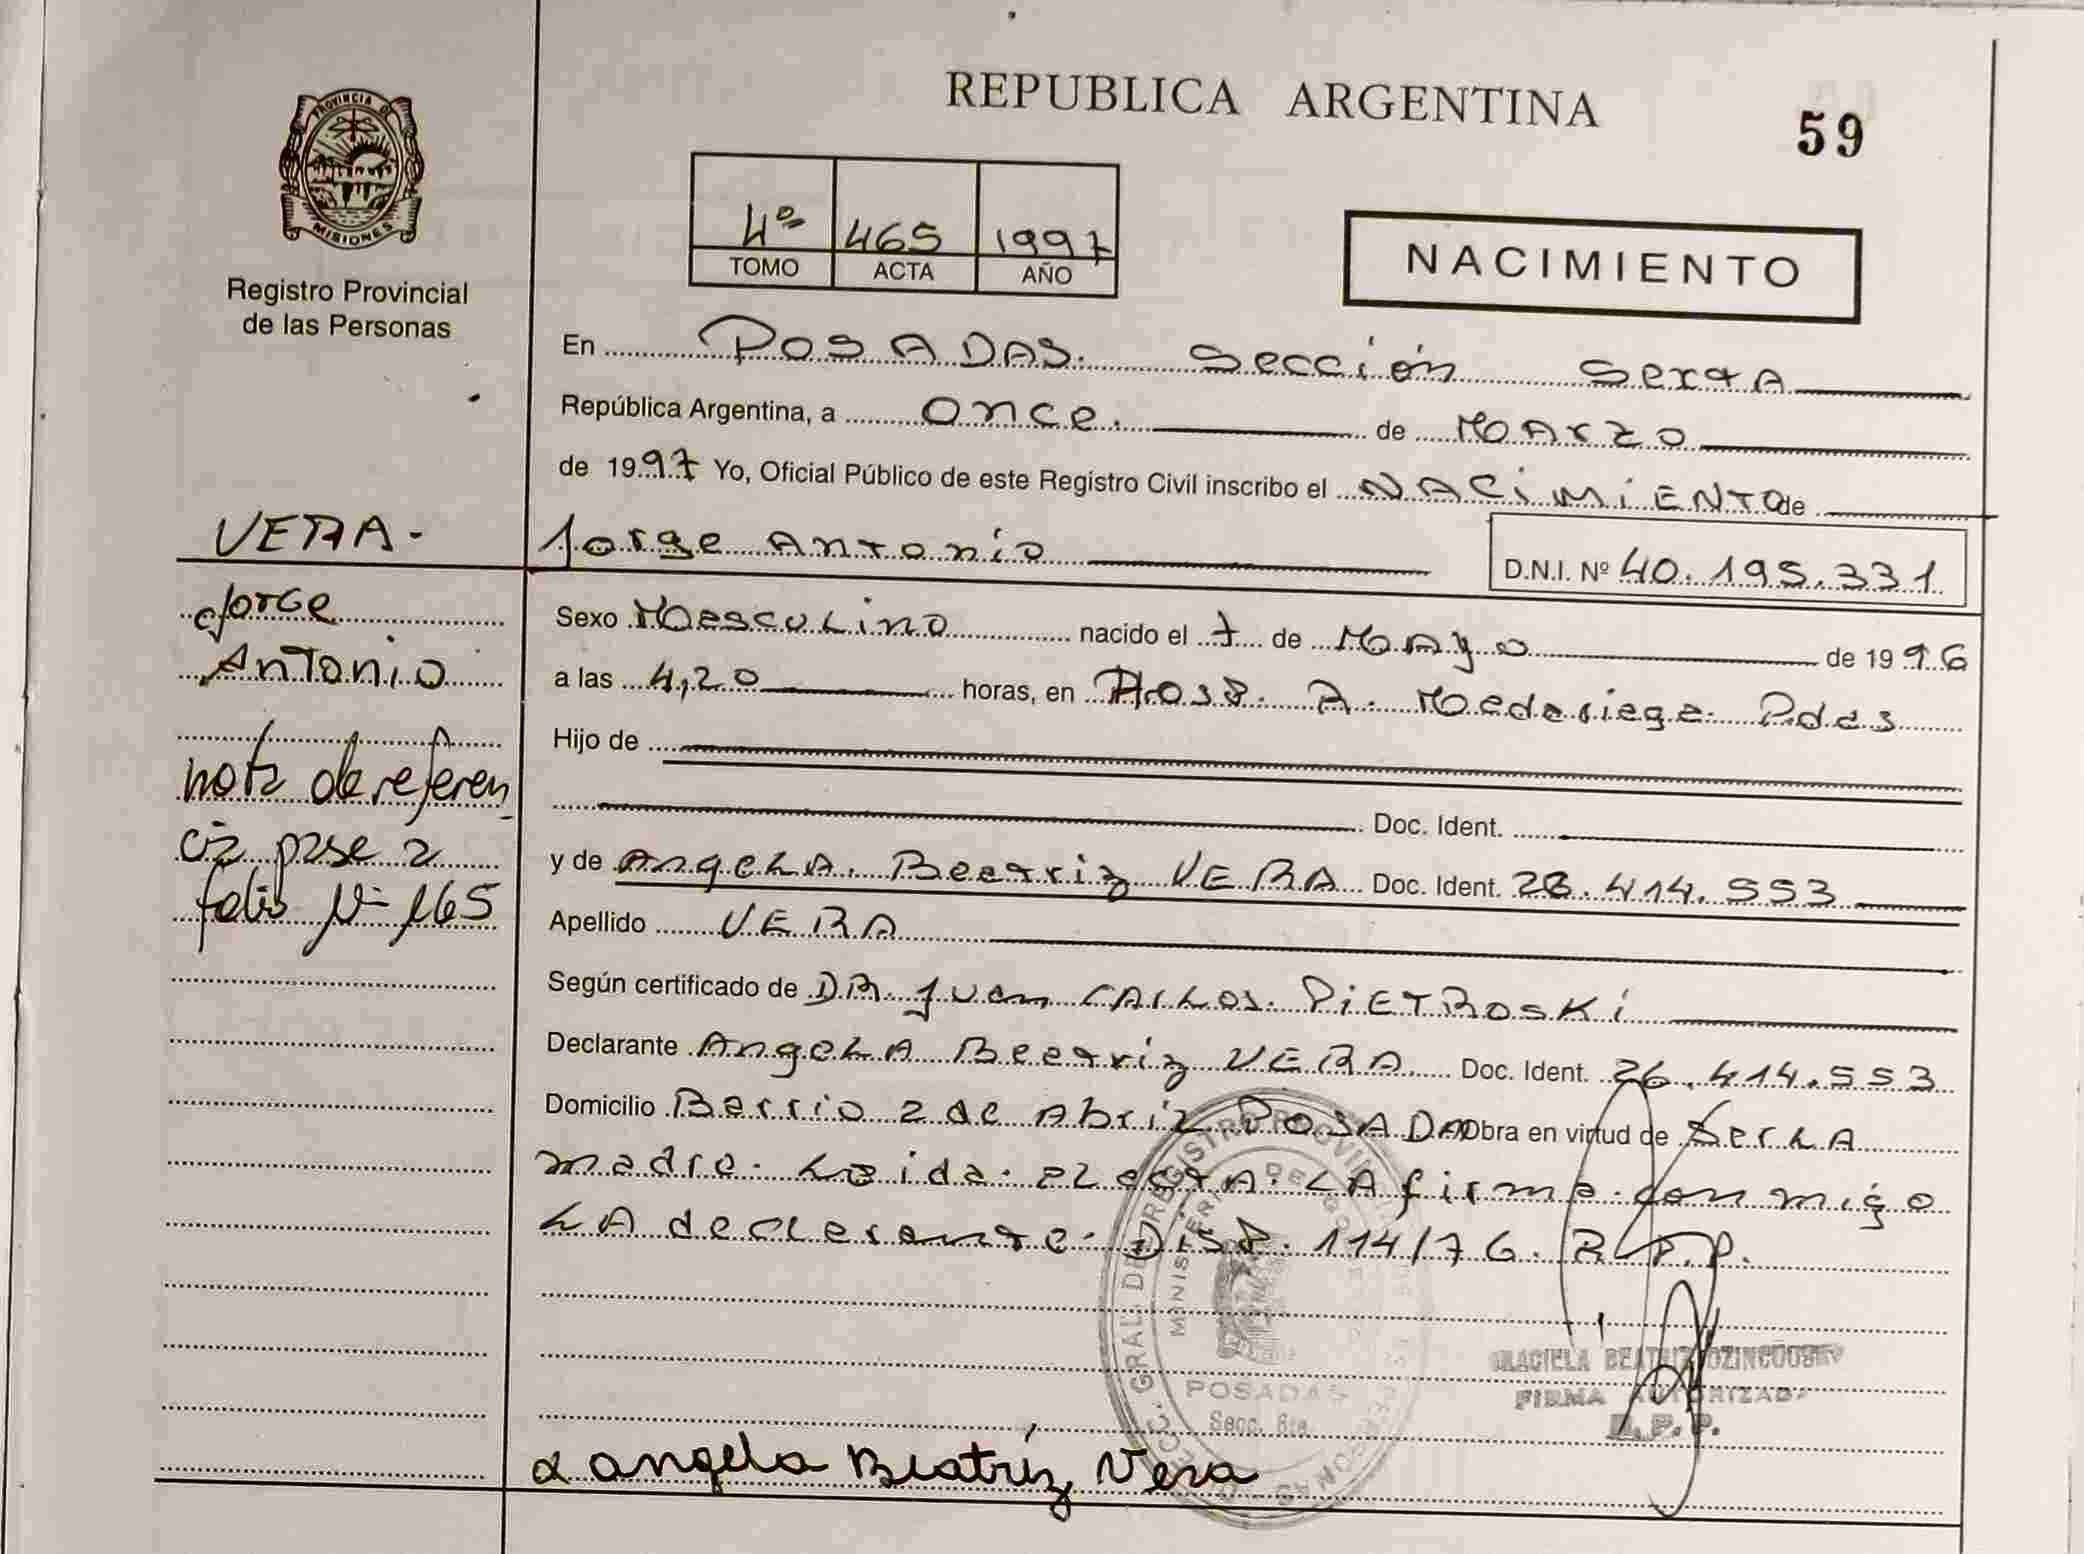 REPUBLICA ARGENTINA
59
PROVINCIA DE
MISIONES
Registro Provincial
de las Personas
4º 465 1997
TOMO ACTA AÑO
NACIMIENTO
En POSADAS. Sección Sexta
República Argentina, a once. de Marzo
de 1997 Yo, Oficial Público de este Registro Civil inscribo el NACIMIENTO de
VERA-
Jorge Antonio
D.N.I. Nº 40.195.331
Jorge
Antonio
nota de referen
cia pase a
folio Nº 165
Sexo Masculino nacido el 7 de Mayo de 1996
a las 4,20 horas, en Hosp. R. Madariaga Pdas
Hijo de
Doc. Ident.
y de Angela Beatriz VERA Doc. Ident. 26.414.553
Apellido VERA
Según certificado de DR. Juan CARLOS PIETROSKi
Declarante Angela Beatriz VERA Doc. Ident. 26.414.553
Domicilio Barrio 2 de Abril POSADAS Obra en virtud de Ser LA
madre. Leida el acta. LA firma conmigo
LA declarante. Disp. 114/76. R.P.P.
DIRECC. GRAL. DE REGISTRO PROVINCIAL
POSADAS
Secc. 6ta.
GRACIELA BEATRIZ
FIRMA AUTORIZADA
R.P.P.
Angela Beatríz Vera